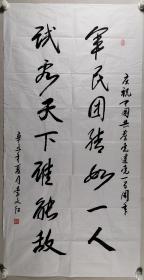 庆祝中国共产党建党一百周年
军民团结如一人
试看天下谁能敌
辛丑年夏月李文江